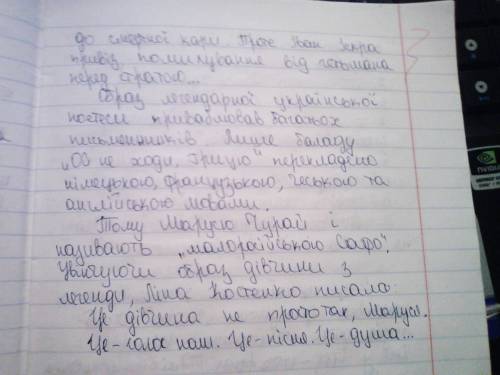 до смертної кари. Проте Іван Іскра
привіз помилування від гетьмана
перед стратою...
Образ легендарної української
поетеси приваблював багатьох
письменників. Лише баладу
„Ой не ходи, Грицю" перекладено
німецькою, французькою, чеською та
англійською мовами.
Тому Марусю Чурай і
називають „малоросійською Сафо".
образ дівчини з
легенди, Ліна Костенко писала:
Це дівчина не просто так, Маруся.
Це - голос наш. Це - пісня. Це - душа...
NVIDIA